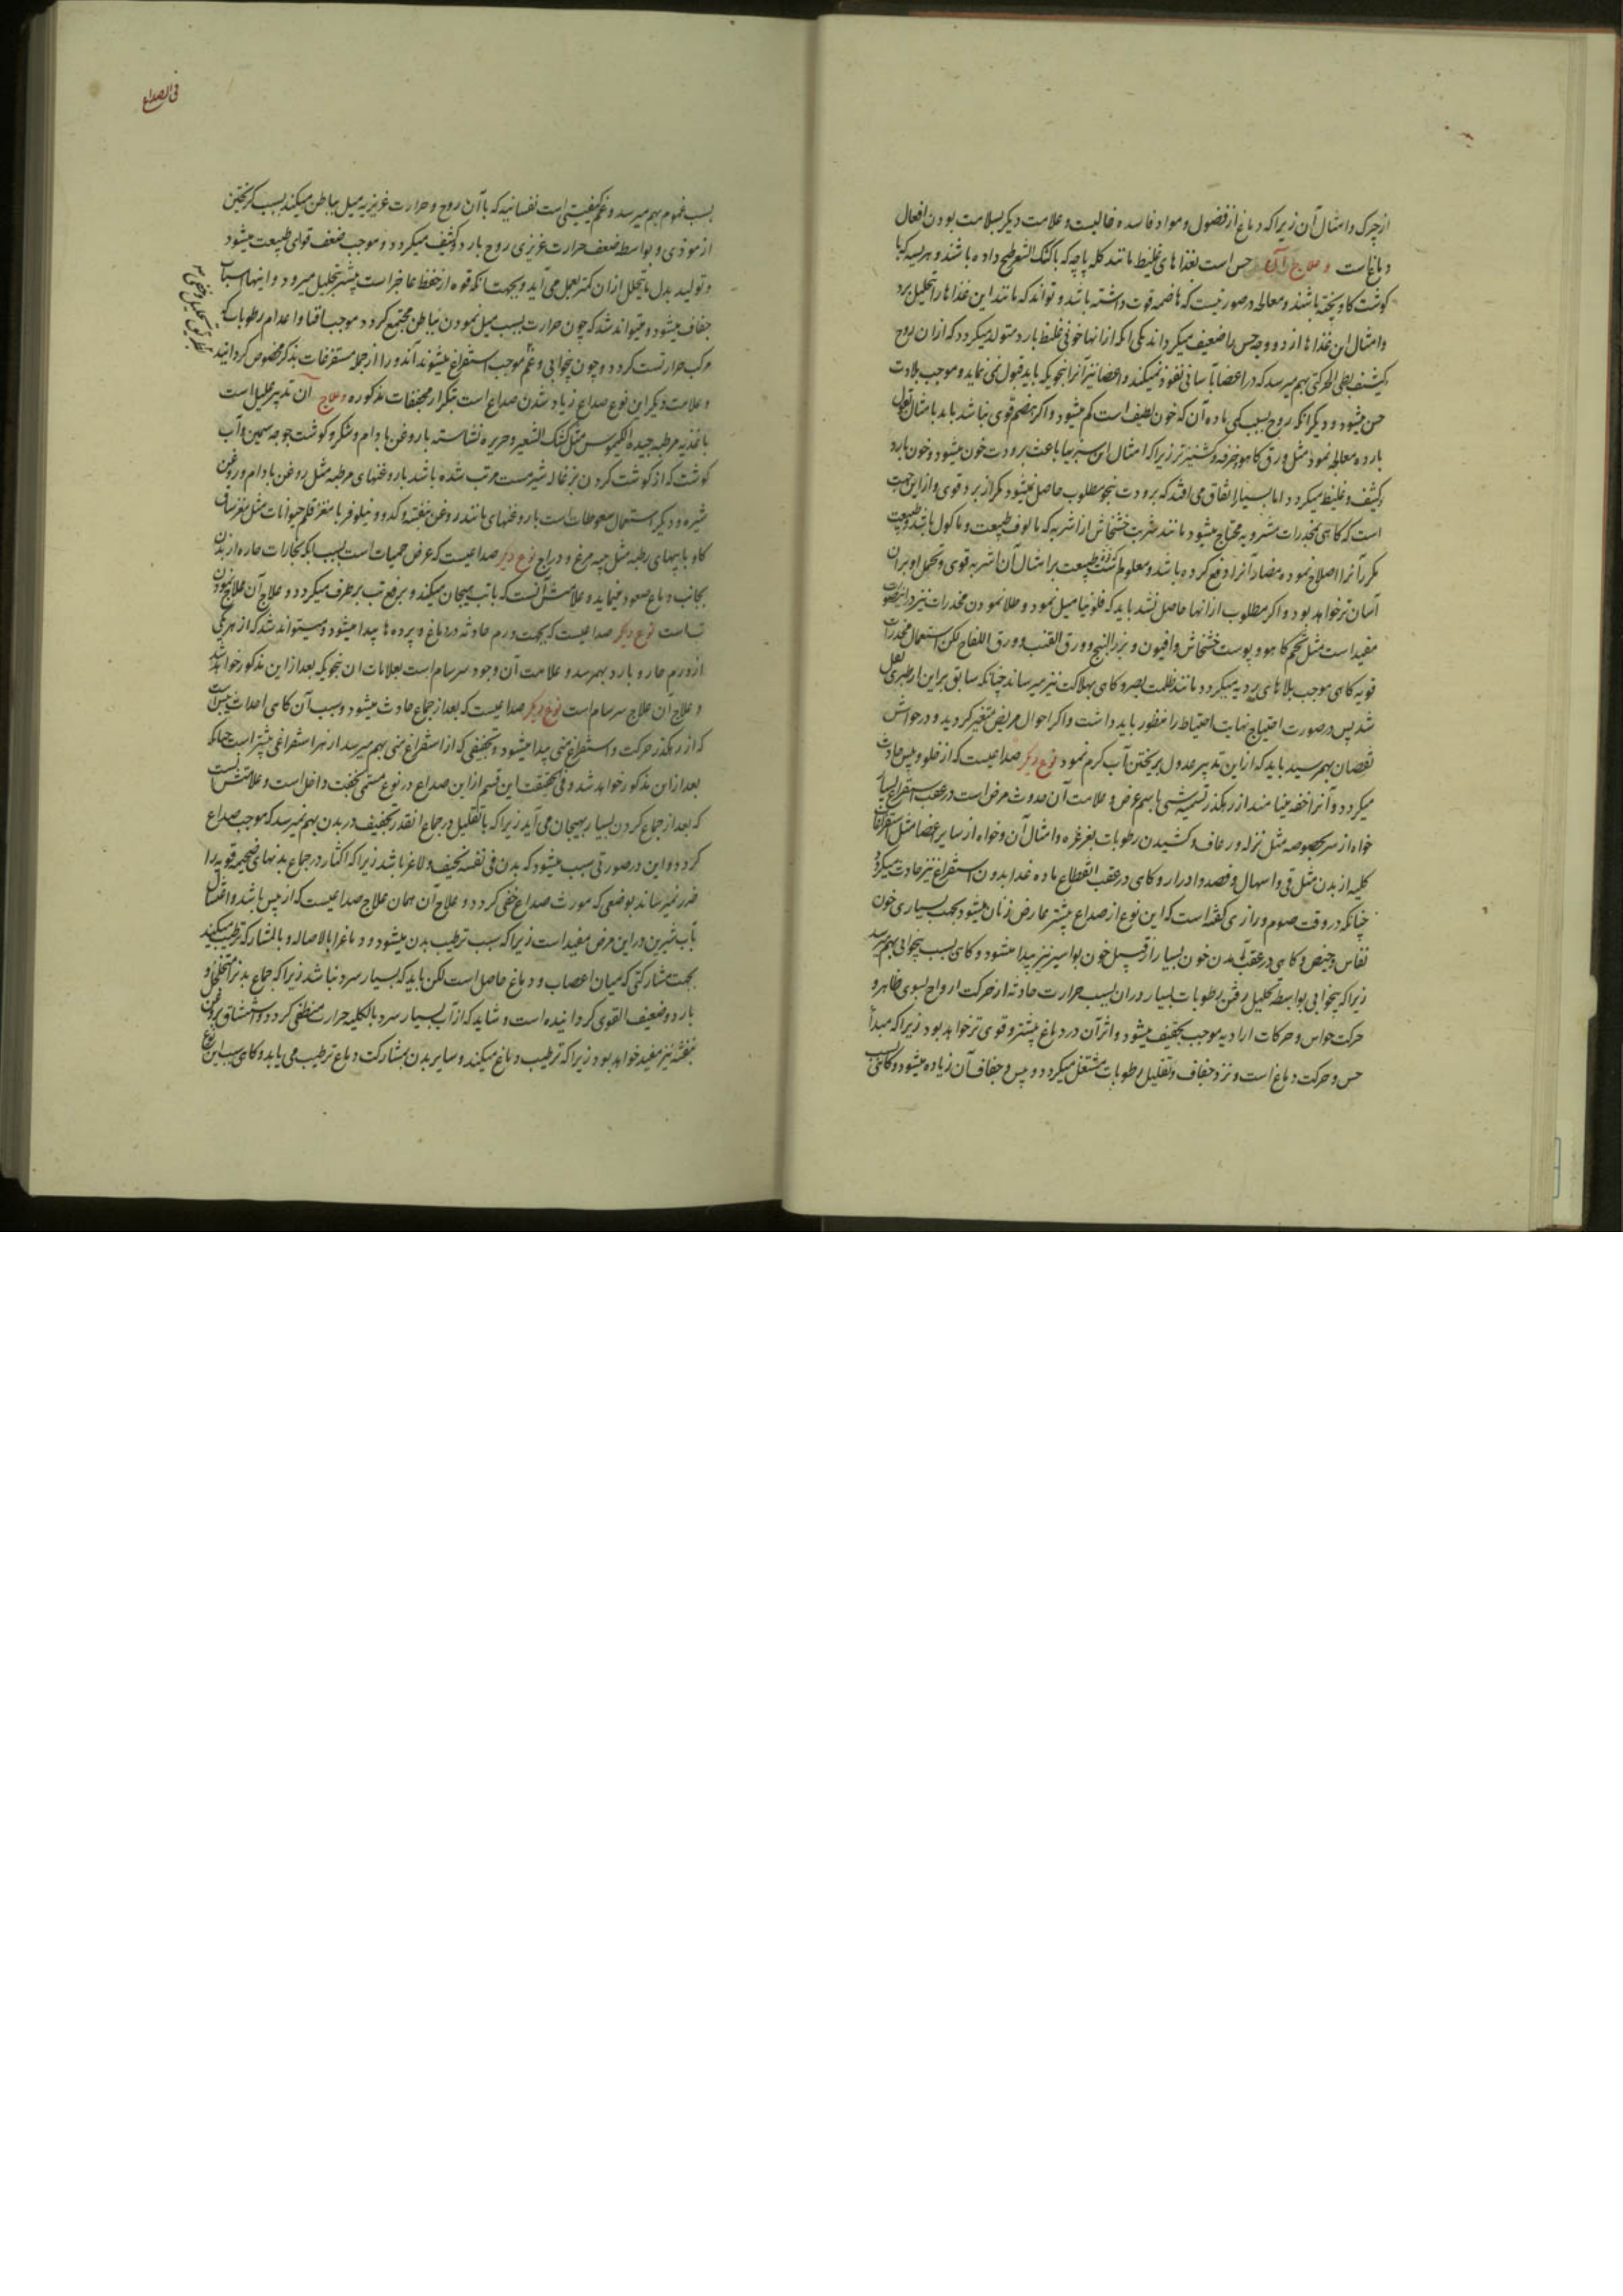 از چرک و امثال آن زیرا که دماغ از فضول و مواد فاسده خالیست و علامت دیکر سلامت بودن افعال
دماغ است و علاج آن حس است بغذاهای غلیظ مانند کله پاچه که با کشک الشعیر طبخ داده باشند و هریسه که با
کوشت کاو پخته باشند و معالجه در صورتیست که هاضمه قوت داشته باشد و تواند که مانند این غذاها را تحلیل برد
و امثال این غذاها از دو وجه حس را ضعیف میکرداند یکی آنکه از انها خونی غلیظ بارد متولد میکردد که ازان روح
کثیف بطی الحرکتی بهم میرسد که در اعضا بآسانی نفوذ نمیکند و اعضا نیز آنرا بنحویکه باید قبول نمی نماید و موجب بلادت
حس میشود و دیکر انکه روح بسبب کمی ماده آن که خون لطیف است کم میشود و اکر هضم قوی نباشد باید بامثال بقول
بارده معالجه نمود مثل ورق کاهو و خرفه و کشنیز تر زیرا که امثال این سبزیها باعث برودت خون میشود و خون بارد
کثیف و غلیظ میکردد اما بسیار اتفاق می افتد که برودت بنحو مطلوب حاصل نمیشود مکر از برد قوی و ازاین جهت
است که کاهی بمخدرات مشروبه محتاج میشود مانند شربت خشخاش از اشربه که مالوف طبیعت و ماکول باشد و طبیعت
مکرر آنرا اصلاح نموده مضار آنرا دفع کرده باشد و معلوم کشته طبیعت بر امثال آن اشربه قوی و تحمل او بران
آسان تر خواهد بود و اکر مطلوب ازانها حاصل نشد باید که فلونیا میل نمود و طلا نمودن مخدرات نیز دراینصورت
مفید است مثل تخم کاهو و پوست خشخاش و افیون و بزر البنج و ورق القنب و ورق اللفاح لکن استعمال مخدرات
قویه کاهی موجب بلاهای ردیه میکردد مانند ظلمت بصر و کاهی بهلاکت نیز میرساند چنانکه سابق براین از طبری نقل
شد پس در صورت احتیاج نهایت احتیاط را منظور باید داشت و اکر احوال مریض متغیر کردید و در حواش
نقصان بهم رسید باید که ازاین تدبیر عدول بریختن آب کرم نمود نوع دیکر صداعیست که از خلو و یبس حادث
میکردد و آنرا خفه مینامند از رهکذر تسمیه شیی باسم عرض و علامت آن حدوث مرض است در عقب استفراغ بسیار
خواه از سر بخصوصه مثل نزله و رعاف و کشیدن رطوبات بغرغره و امثال آن و خواه از سایر اعضا مثل استفراغات
کلیه از بدن مثل قی و اسهال و فصد و ادرار و کاهی در عقب انقطاع ماده غذا بدون استفراغ نیز حادث میکردد
چنانکه در وقت صوم و رازی کفته است که این نوع از صداع بیشتر عارض زنان میشود بجهت بسیاری خون
نفاس و حیض و کاهی در عقب آمدن خون بسیار از قبیل خون بواسیر نیز پیدا میشود و کاهی بسبب بیخوابی بهم میرسد
زیرا که بیخوابی بواسطه تحلیل رفتن رطوبات بسیار دران بسبب حرارت حادثه از حرکت ارواح بسوی ظاهر و
حرکت حواس و حرکات ارادیه موجب تجفیف میشود و اثر آن در دماغ بیشتر و قوی تر خواهد بود زیرا که مبدأ
حس و حرکت دماغ است و نزد جفاف و تقلیل رطوبات مشتعل میکردد و یبس و جفاف آن زیاده میشود و کاهی بسبب
فی الصداع
بسبب غموم بهم میرسد و غم کیفیتی است نفسانیه که باآن روح و حرارت غریزیه میل بباطن میکند بسبب کریختن
از موذی و بواسطه ضعف حرارت غریزی روح بارد و کثیف میکردد و موجب ضعف قوای طبیعت میشود
و تولید بدل ما یتحلل ازان کمتر بعمل می آید و بجهت انکه قوه از حفظ عاجز است بیشتر بتحلیل میرود و اینها اسباب
جفاف میشود و میتواند شد که چون حرارت بسبب میل نمودن بباطن مجتمع کردد موجب افنا و اعدام رطوبات که
مرکب حرارتست کردد و چون بیخوابی و غم موجب استفراغ میشوند آندو را از جمله مستفرغات بذکر مخصوص کردانید
و علامت دیکر این نوع صداع زیاد شدن صداع است بتکرار مجففات مذکوره و علاج آن تدبیر علیل است
باغذیه مرطبه جیده الکیموس مثل کشک الشعیر و حریره نشاسته با روغن بادام و شکر و کوشت جوجه سمین و آب
کوشت که از کوشت کردن بزغاله شیرمست مرتب شده باشد با روغنهای مرطبه مثل روغن بادام و روغن
شیره و دیکر استعمال سعوطات است با روغنهای مانند روغن بنفشه و کدو و نیلوفر با مغز قلم حیوانات مثل مغز ساق
کاو با پیهای رطبه مثل پیه مرغ و دراج نوع دیکر صداعیست که عرض حمیات است بسبب انکه بخارات حاره از بدن
بجانب دماغ صعود مینماید و علامتش آنست که با تب هیجان میکند و برفع تب برطرف میکردد و علاج آن علاج نمودن
تب است نوع دیکر صداعیست که بجهت ورم حادثه در دماغ و پرده ها پیدا میشود و میتواند شد که از هر یکی
از ورم حار و بارد بهم رسد و علامت آن وجود سرسام است بعلامات ان بنحویکه بعد ازاین مذکور خواهد شد
و علاج آن علاج سرسام است نوع دیکر صداعیست که بعد از جماع حادث میشود و سبب آن کاهی احداث یبس است
که از رهکذر حرکت و استفراغ منی پیدا میشود و تجفیفی که از استفراغ منی بهم میرسد از هر استفراغی بیشتر است چنانکه
بعد ازاین مذکور خواهد شد و فی الحقیقت این قسم ازاین صداع در نوع مسمی بخفت داخل است و علامتش آنست
که بعد از جماع کردن بسیار بهیجان می آید زیرا که با تقلیل در جماع انقدر تجفیف در بدن بهم نمیرسد که موجب صداع
کردد و این در صورتی سبب میشود که بدن فی نفسه نحیف و لاغر باشد زیرا که اکثار در جماع بدنهای ضخیمه قویه را
ضرر نمیرساند بوضعی که مورث صداع خفی کردد و علاج آن همان علاج صداعیست که از یبس باشد و اغتسال
بآب شیرین در این مرض مفید است زیرا که سبب ترطیب بدن میشود و دماغ را بالاصاله و بالمشارکه ترطیب میکند
بجهت مشارکتی که میان اعصاب و دماغ حاصل است لکن باید که بسیار سرد نباشد زیرا که جماع بدنرا متخلخل و
بارد و ضعیف القوی کردانیده است و شاید که از آب بسیار سرد بالکلیه حرارت منطفی کردد و استنشاق روغن
بنفشه نیز مفید خواهد بود زیرا که ترطیب دماغ میکند و سایر بدن بمشارکت دماغ ترطیب می یابد و کاهی سبب این نوع